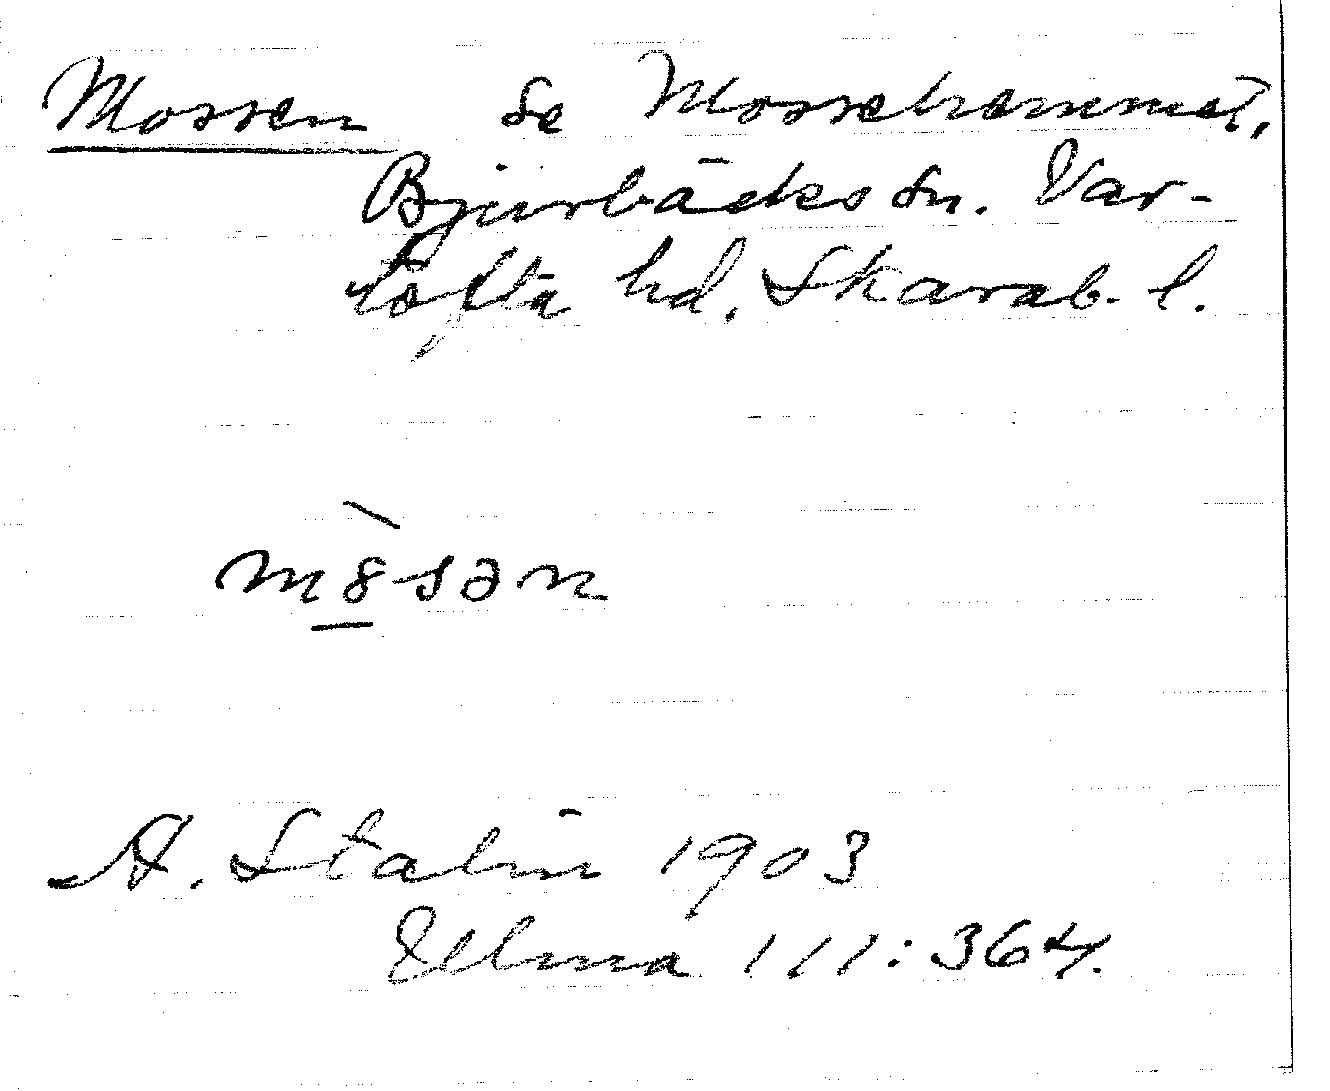 Mossen se Mossehemmet,
Bjurbäcks sn. Var-
tofta hd, Skarab. l.
m8sən
A. Stalin 1903
Ulma 111:364.